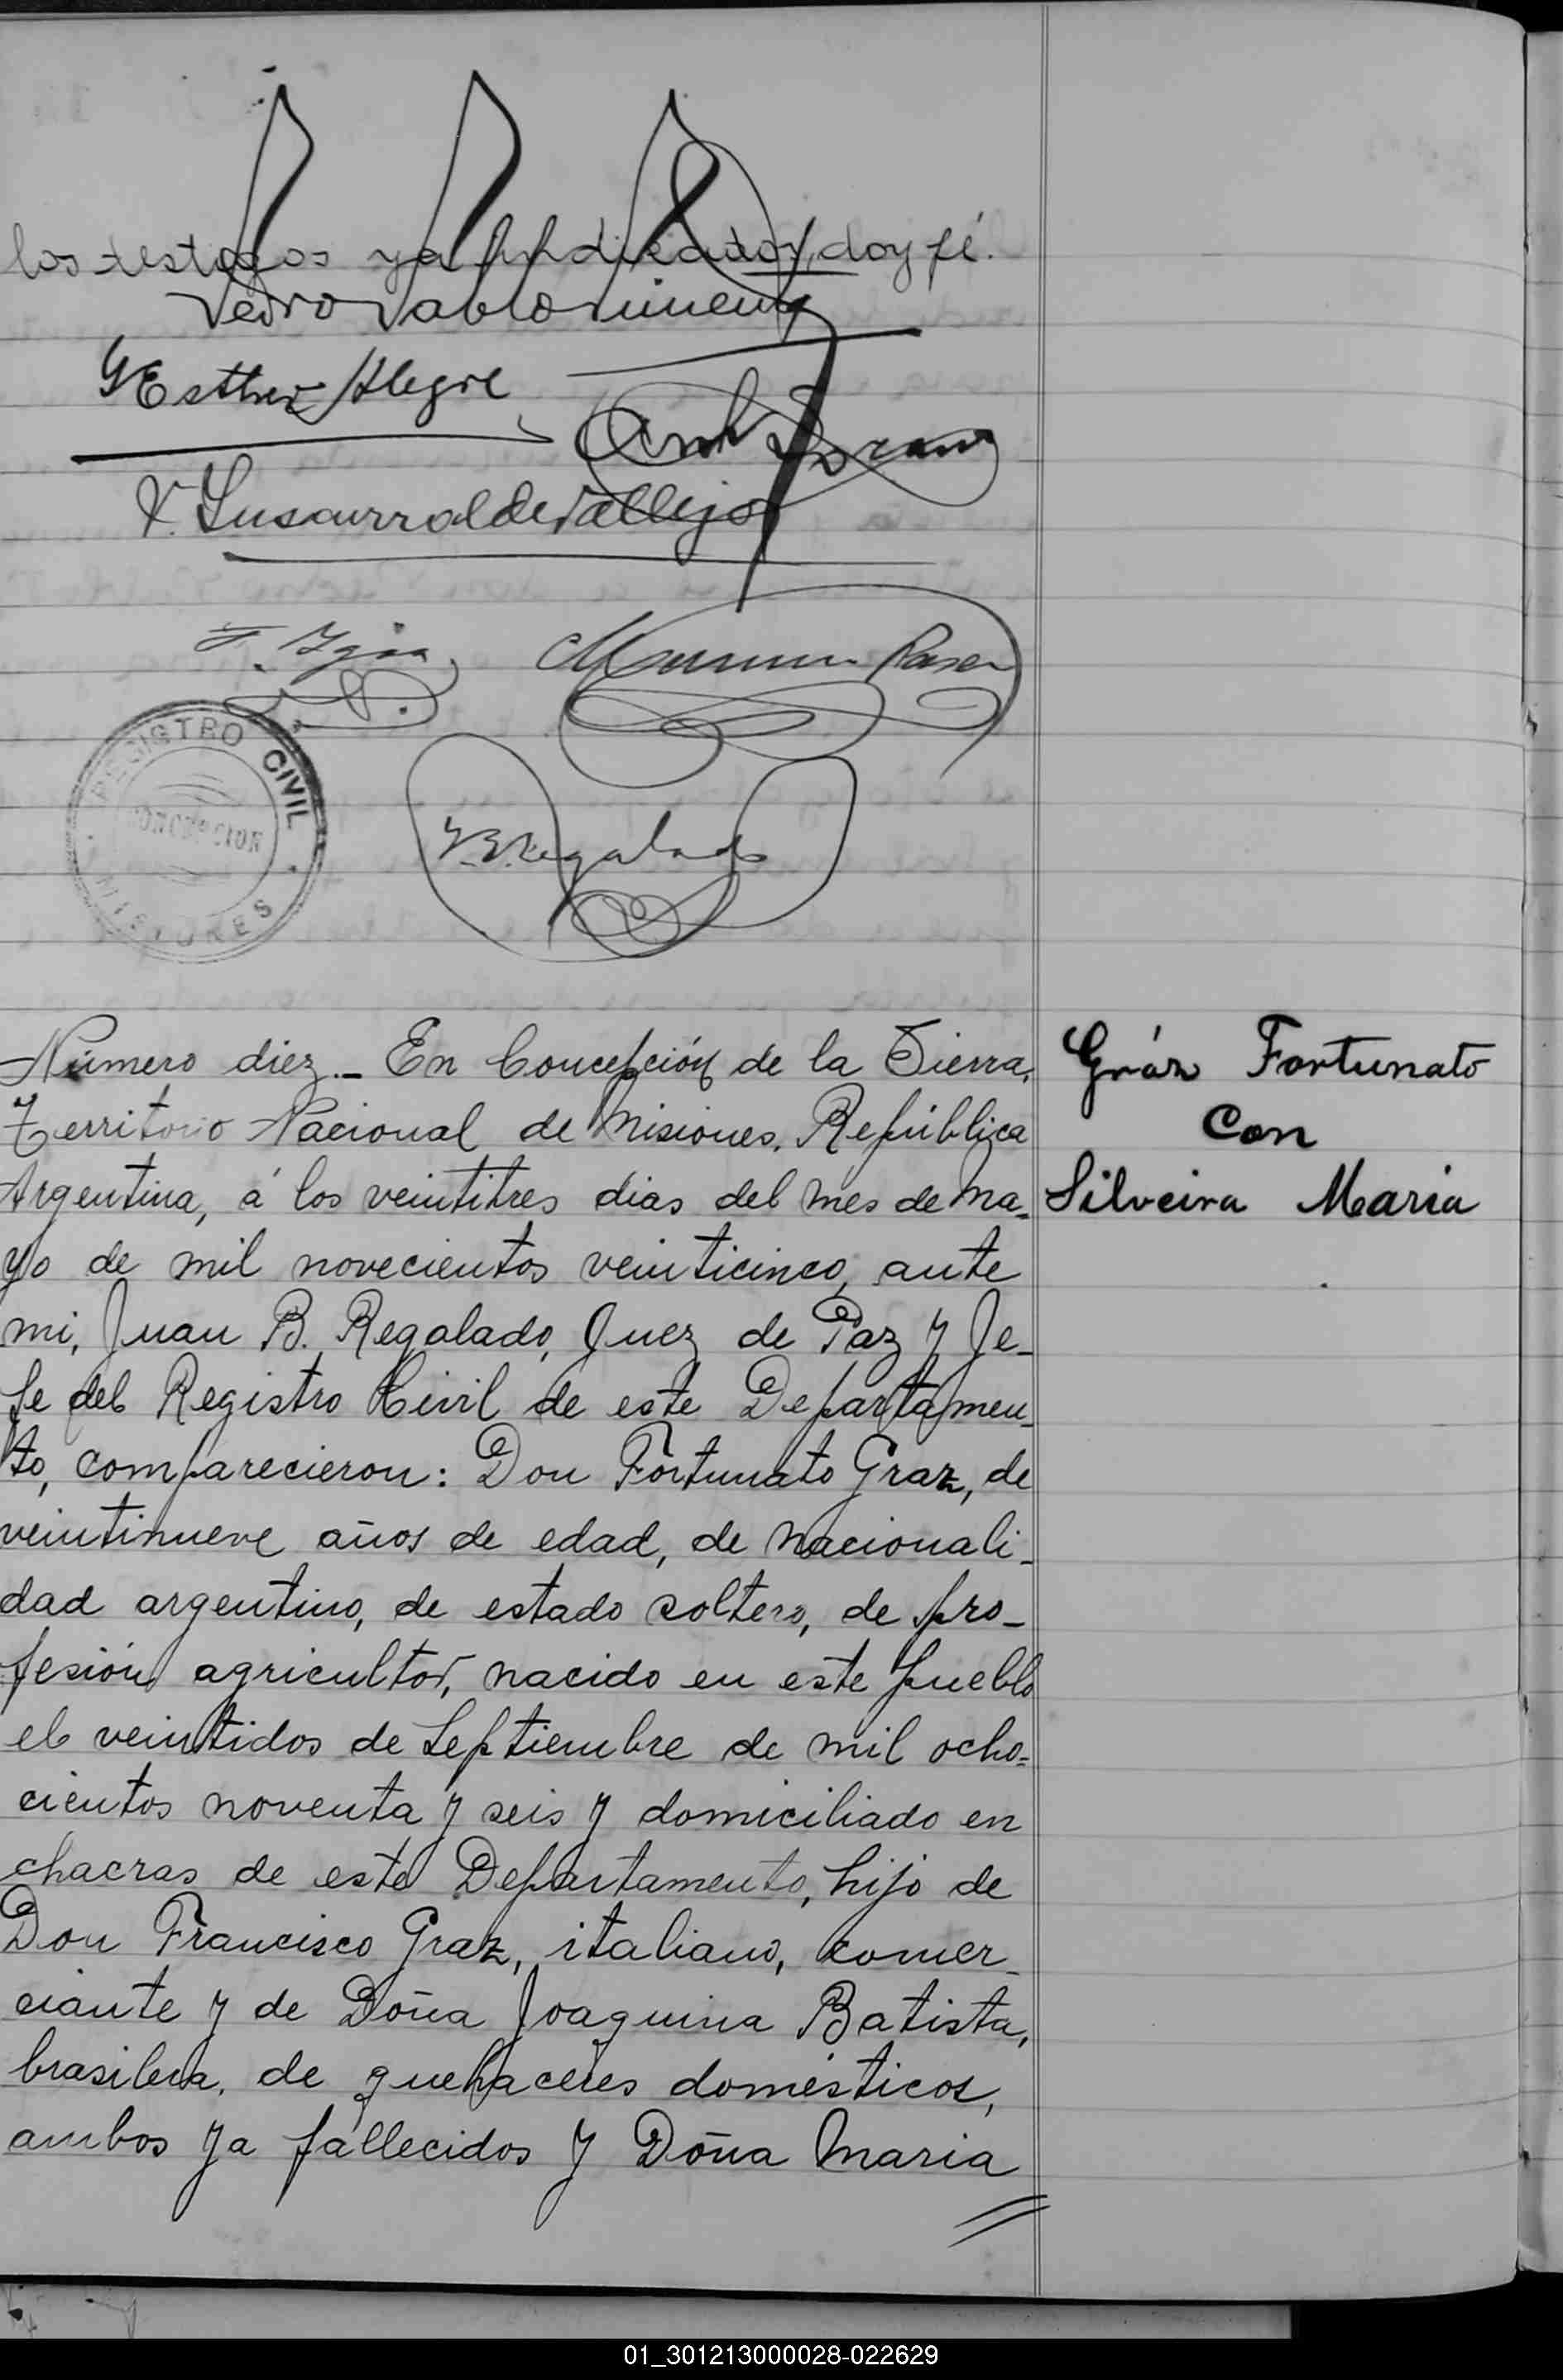 los testigos ya indicados, doy fé.
Pedro Pablo Gimenez
Esther Alegre
V. Susaurralde Vallejos
REGISTRO CIVIL
CONCEPCION
MISIONES
J. B. Regalado
Número diez_ En Concepción de la Sierra,
Territorio Nacional de Misiones, República
Argentina, á los veintitres dias del mes de Ma=
yo de mil novecientos veinticinco, ante
mi, Juan B. Regalado, Juez de Paz y Je-
fe del Registro Civil de este Departamen_
to, comparecieron: Don Fortunato Graz, de
veintinueve años de edad, de nacionali_
dad argentino, de estado soltero, de pro_
fesión agricultor, nacido en este pueblo
el veintidos de Septiembre de mil ocho=
cientos noventa y seis y domiciliado en
chacras de este Departamento, hijo de
Don Francisco Graz, italiano, comer_
ciante y de Doña Joaquina Batista,
brasilera, de quehaceres domésticos,
ambos ya fallecidos y Doña Maria
Gráz Fortunato
Con
Silveira Maria
01_301213000028-022629